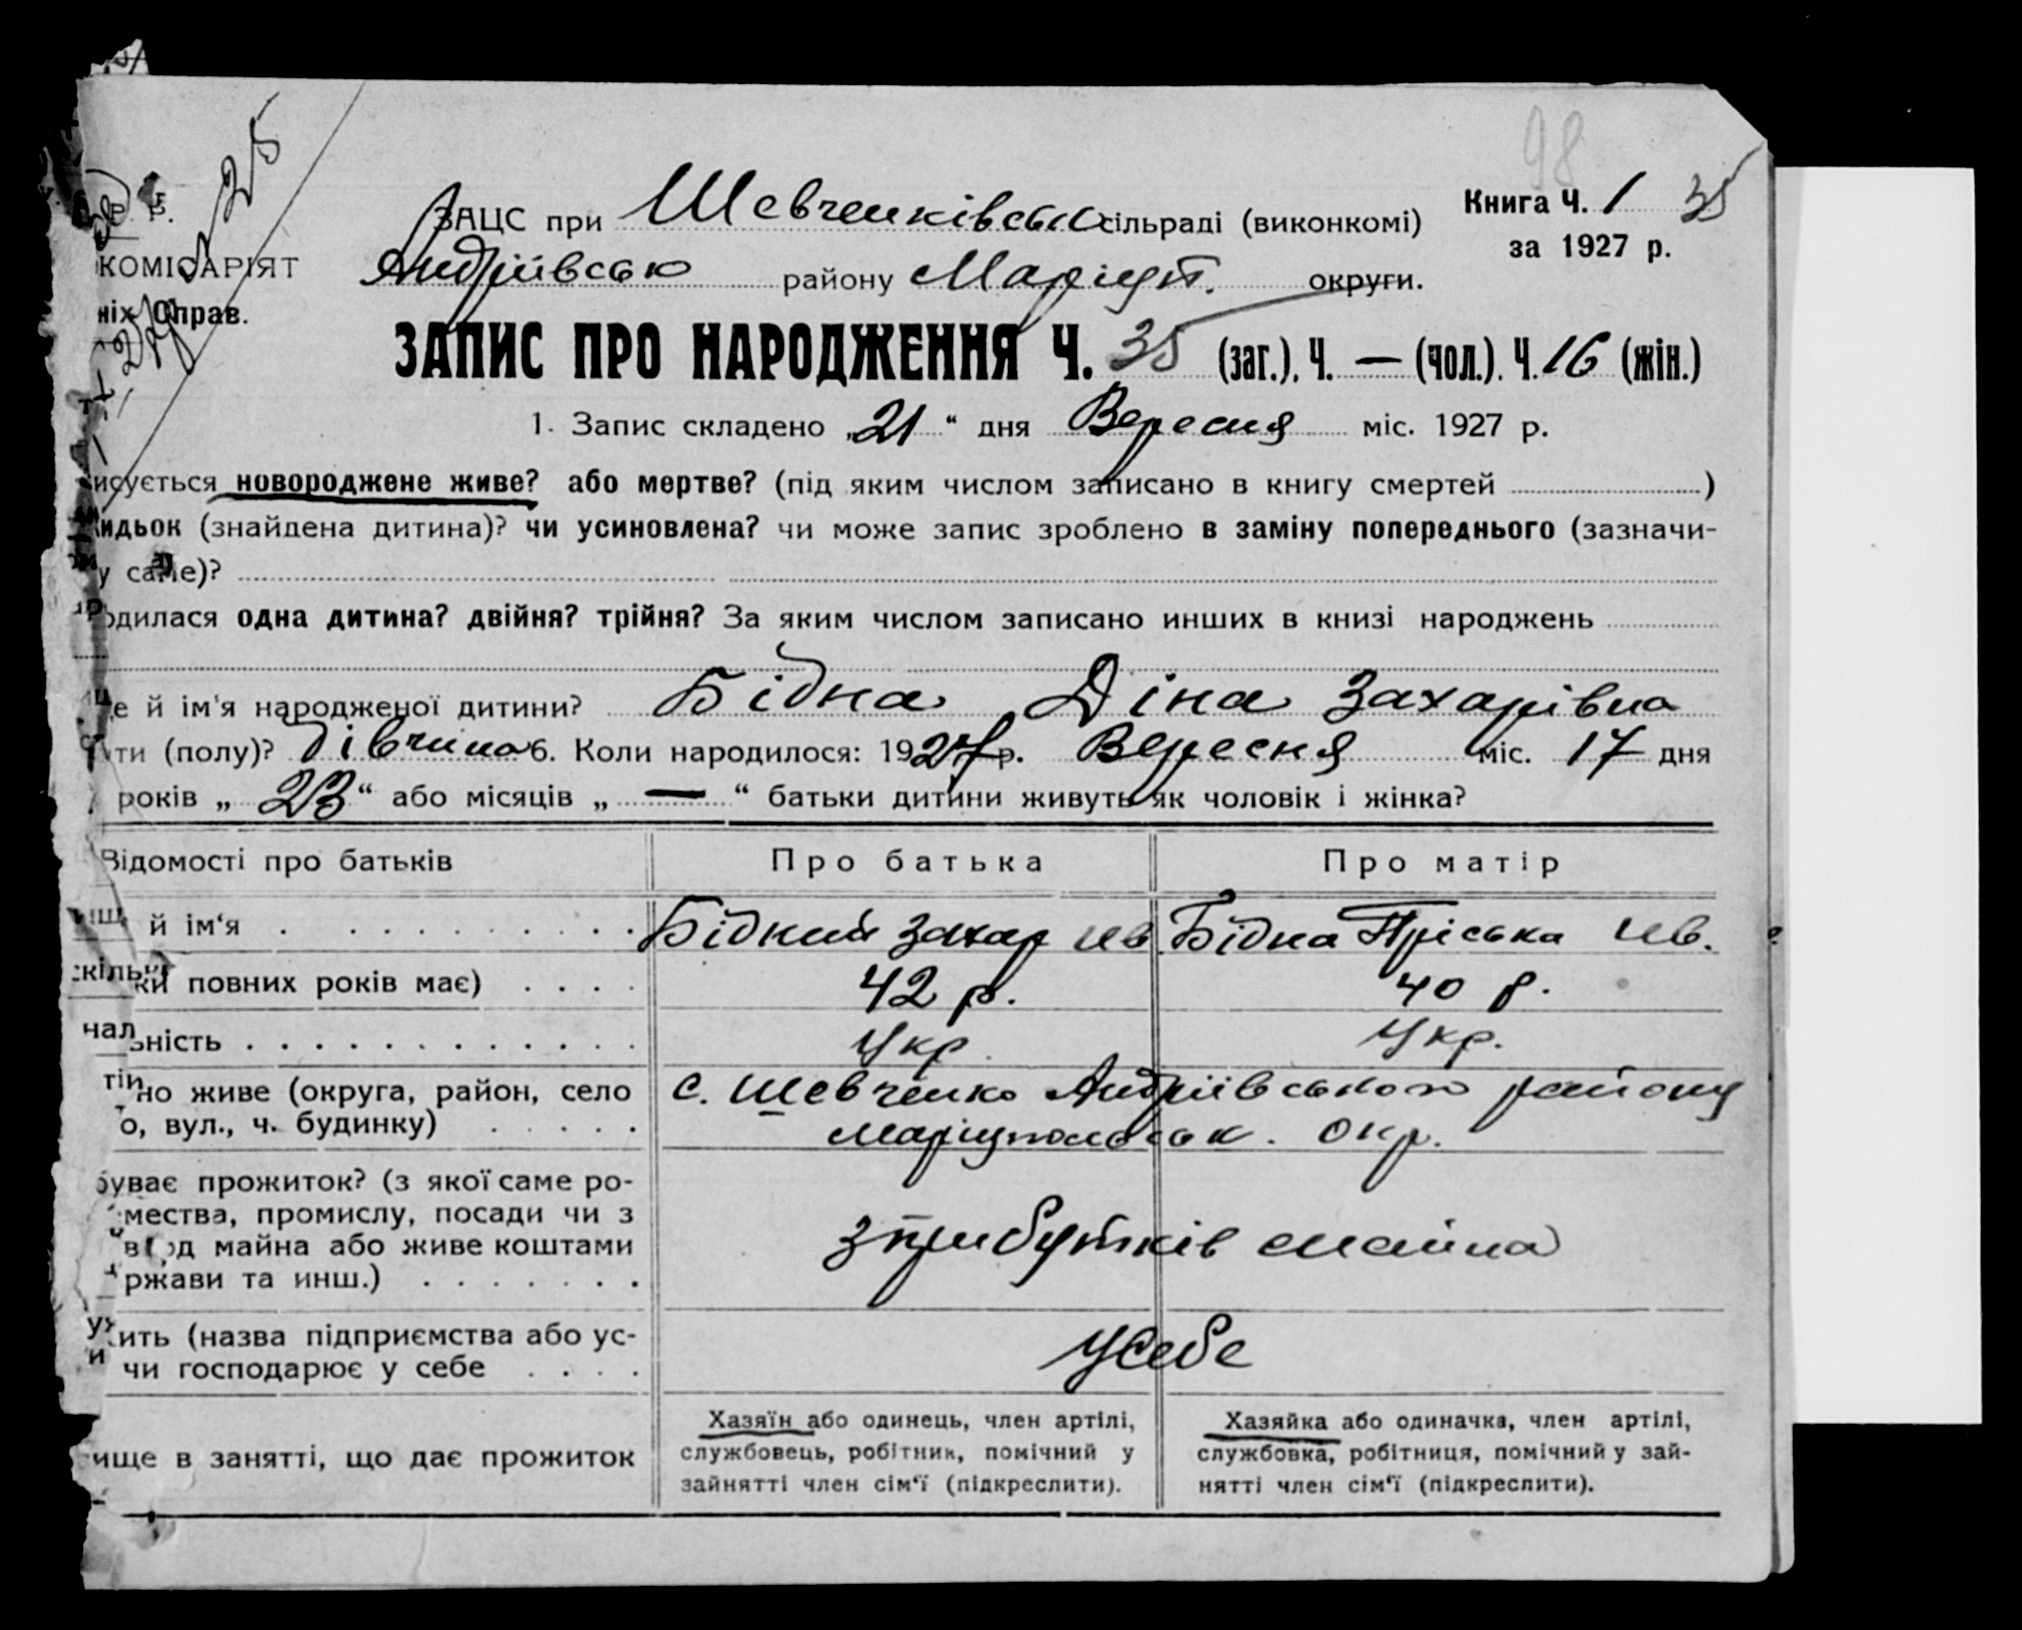 98
25
Р. Р.
ЗАЦС при Шевченківські сільраді (виконкомі) Книга Ч. 1 35
за 1927 р.
КОМІСАРІЯТ Андрійвсько району Маріуп. округи.
ніх Справ.
ЗАПИС ПРО НАРОДЖЕННЯ Ч. 35 (заг.). Ч. — (чол.). Ч. 16 (жін.)
1. Запис складено „21“ дня Вересня міс. 1927 р.
исується новороджене живе? або мертве? (під яким числом записано в книгу смертей )
идьок (знайдена дитина)? чи усиновлена? чи може запис зроблено в заміну попереднього (зазначи-
у саме)?
одилася одна дитина? двійня? трійня? За яким числом записано инших в книзі народжень
е й ім'я народженої дитини? Бідна Діна Захарівна
ти (полу)? дівчина 6. Коли народилося: 1927 р. Вересня міс. 17 дня
років „23“ або місяців „—“ батьки дитини живуть як чоловік і жінка?
Відомості про батьків Про батька Про матір
й ім‘я Бідний Захар Ив Бідна Пріська Ив.
скільки повних років має) 42 р. 40 р.
нальність Укр Укр.
тійно живе (округа, район, село с. Шевченко Андріївського району
о, вул., ч. будинку) Маріупольськ. окр.
буває прожиток? (з якої саме ро-
мества, промислу, посади чи з
від майна або живе коштами з прибутків майна
ржави та инш.)
ужить (назва підприємства або ус-
и чи господарює у себе у себе
ище в занятті, що дає прожиток
Хазяїн або одинець, член артілі,
службовець, робітник, помічний у
зайнятті член сім‘ї (підкреслити).
Хазяйка або одиначка, член артілі,
службовка, робітниця, помічний у зай-
нятті член сім‘ї (підкреслити).